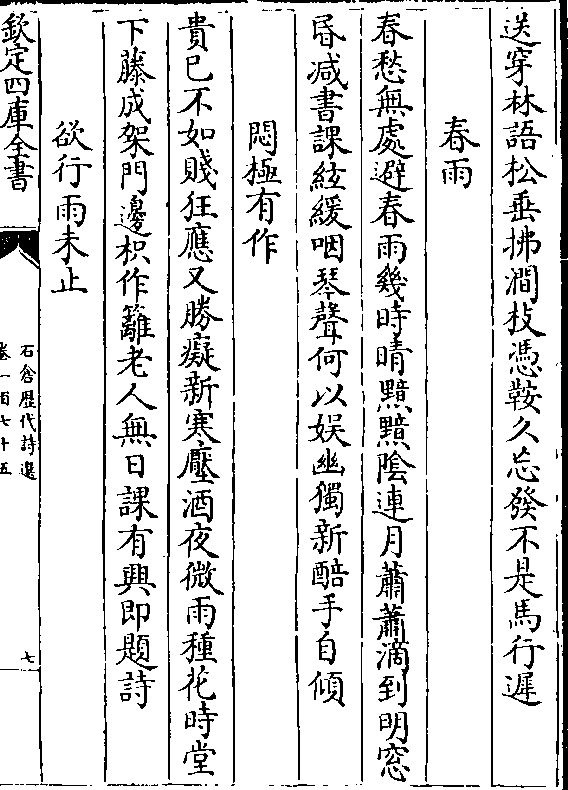 送穿林語松垂拂澗枝憑鞍久忘發不是馬行遲
春雨
春愁無處避春雨幾時晴黯黯陰連月蕭蕭滴到明窓
昏减書課絃緩咽琴聲何以娱幽獨新醅手自傾
悶極有作
貴已不如賤狂應又勝癡新寒壓酒夜微雨種花時堂
下藤成架門邊枳作籬老人無日課有興即題詩
欲行雨未止
欽定四庫全書
石倉歷代詩選
卷一百七十五
七